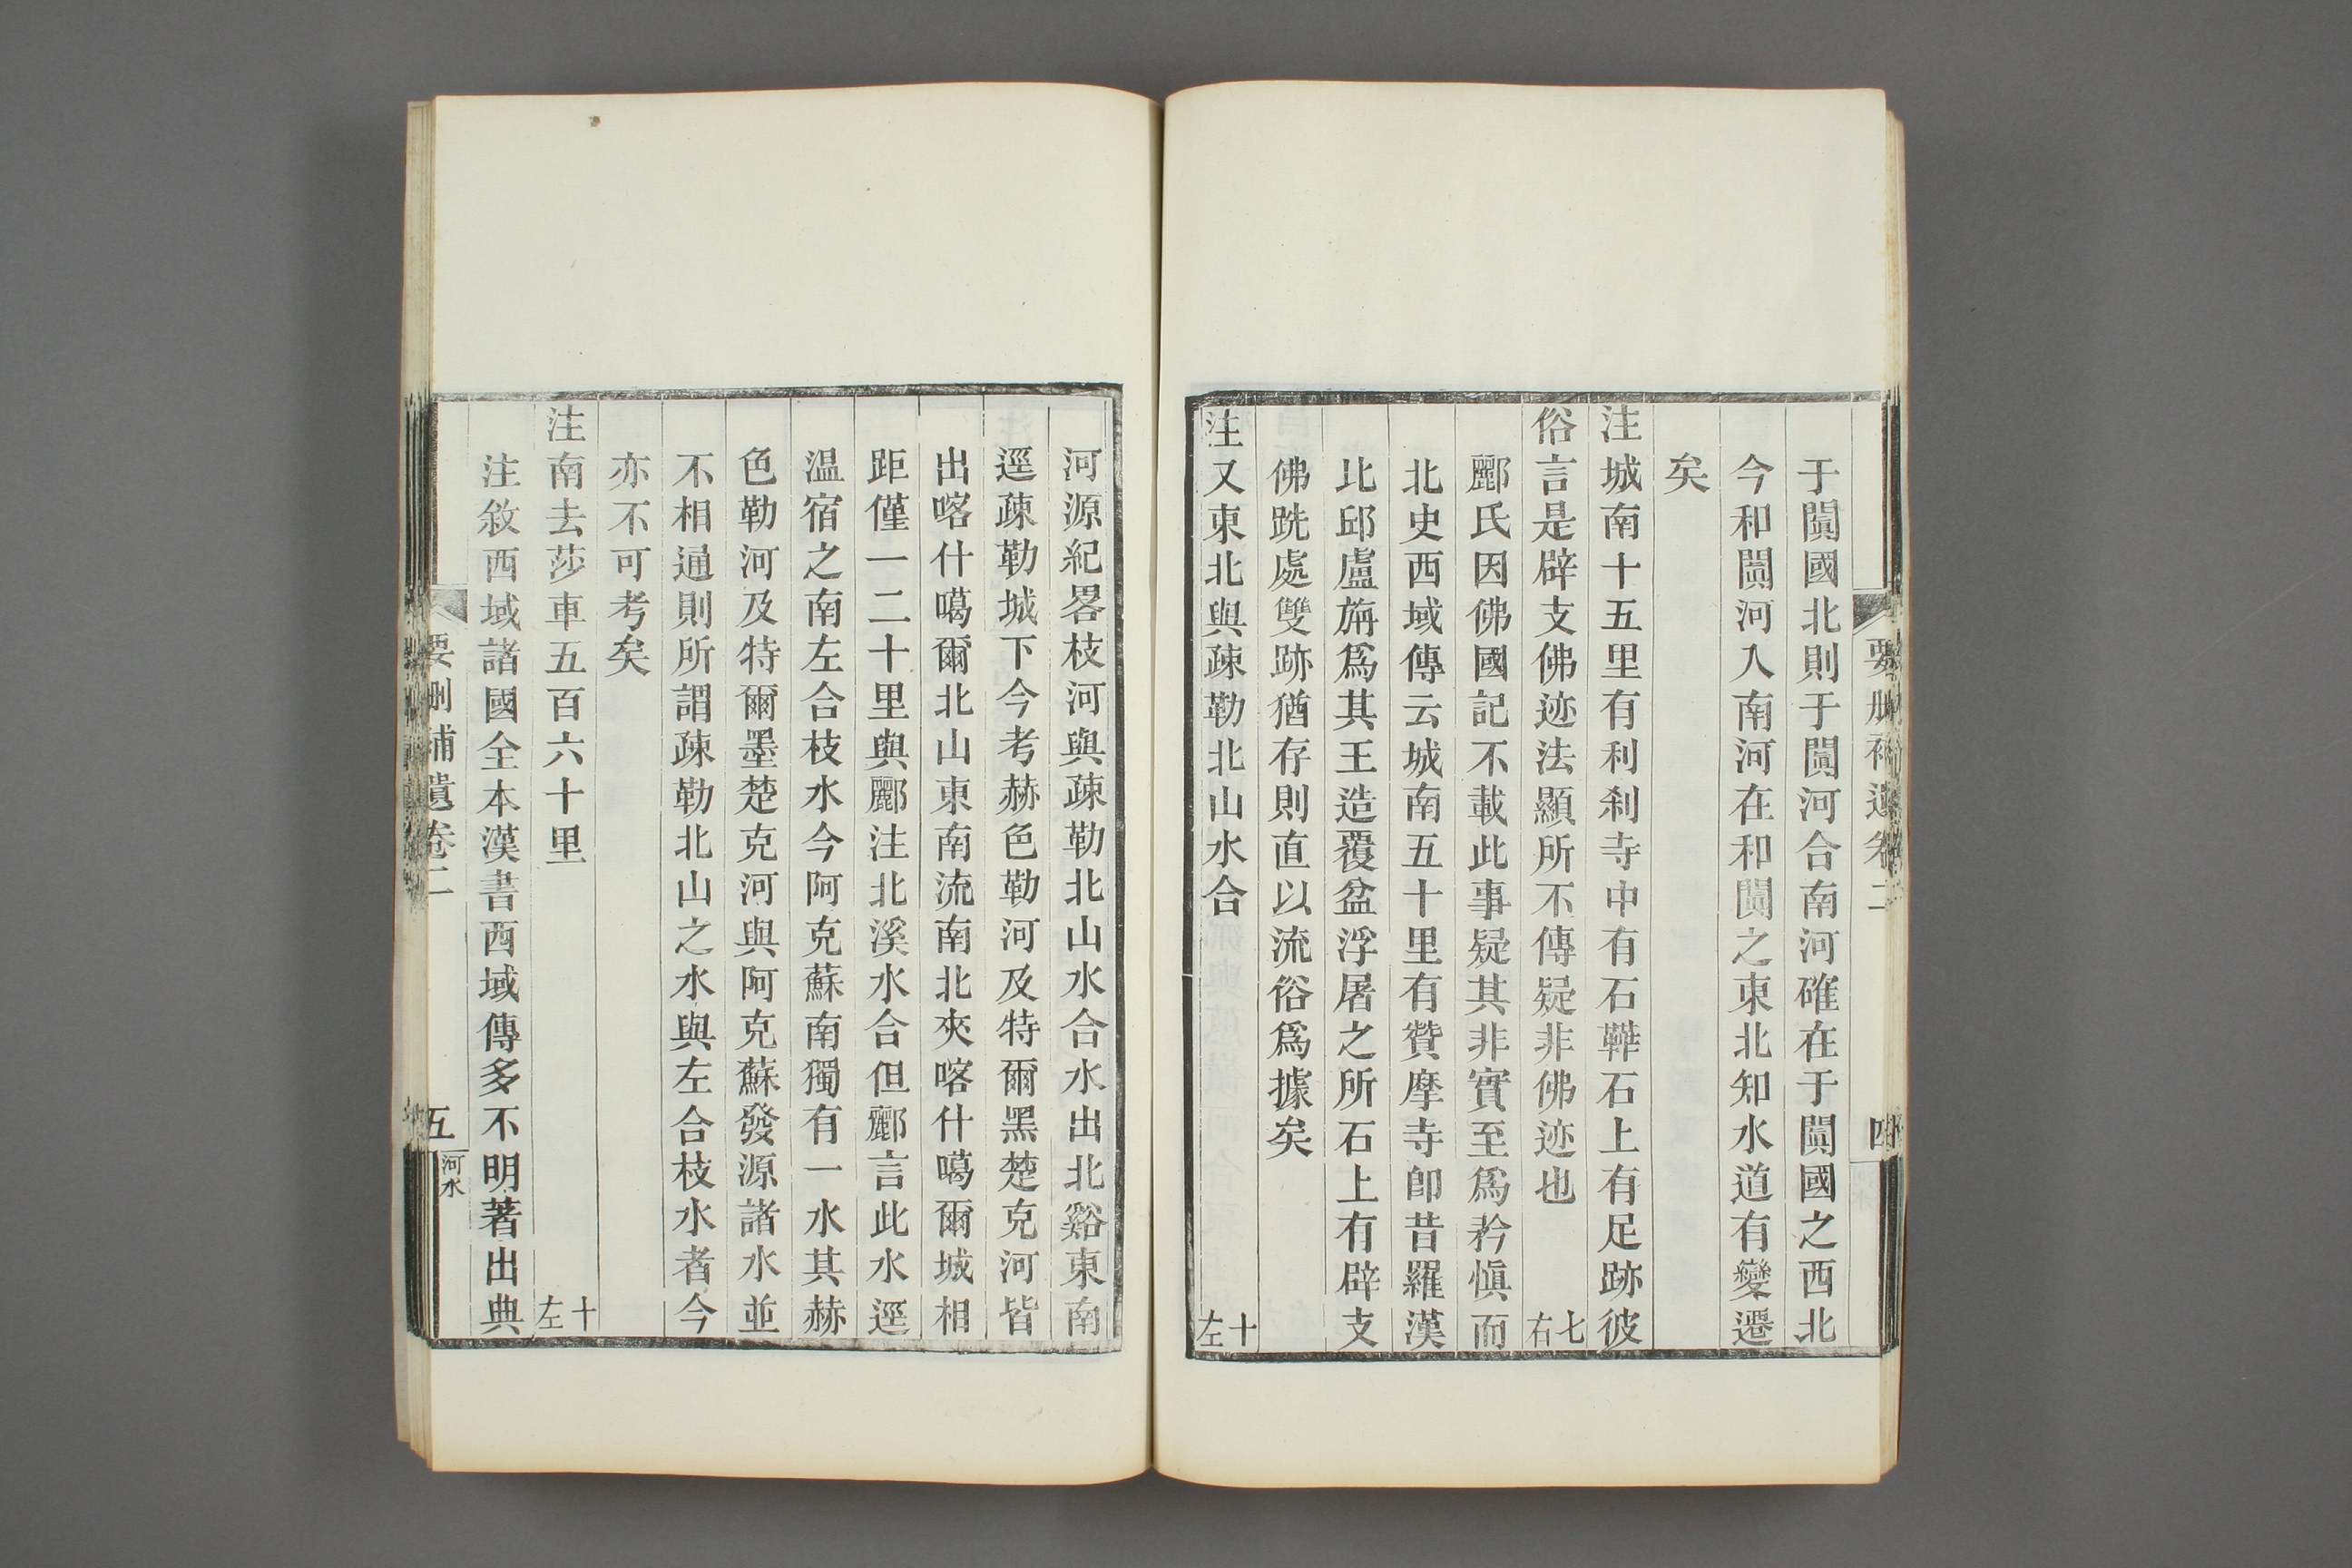 要刪補遺卷二
四
于闐國北則于闐河合南河確在于闐國之西北
今和闐河入南河在和闐之東北知水道有變遷
矣
注城南十五里有利刹寺中有石鞾石上有足跡彼
俗言是辟支佛迹法顯所不傳疑非佛迹也
七右
酈氏因佛國記不載此事疑其非實至爲矜愼而
北史西域傳云城南五十里有贊摩寺卽昔羅漢
比邱盧旃爲其王造覆盆浮屠之所石上有辟支
佛跣處雙跡猶存則直以流俗爲據矣
注又東北與疎勒北山水合
十左
河源紀畧枝河與疎勒北山水合水出北谿東南
逕疎勒城下今考赫色勒河及特爾黑楚克河皆
出喀什噶爾北山東南流南北夾喀什噶爾城相
距僅一二十里與酈注北溪水合但酈言此水逕
温宿之南左合枝水今阿克蘇南獨有一水其赫
色勒河及特爾墨楚克河與阿克蘇發源諸水並
不相通則所謂疎勒北山之水與左合枝水者今
亦不可考矣
注南去莎車五百六十里
十左
注敘西域諸國全本漢書西域傳多不明著出典
要刪補遺卷二
五
河水